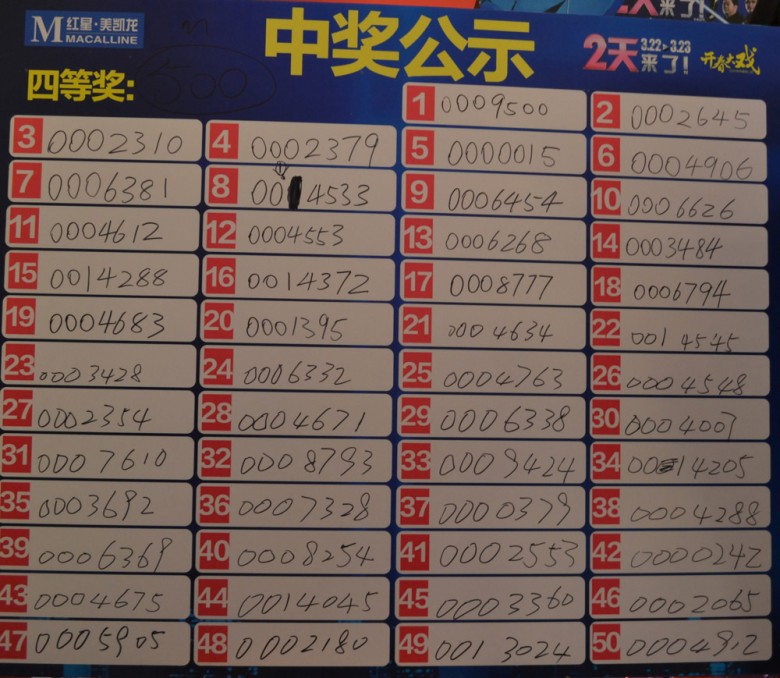 M 红星·美凯龙 MACALLINE
中奖公示
2天 3.22-3.23 来了!
开春大戏
四等奖: 500
1 0009500
2 0002645
3 0002310
4 0002379
5 0000015
6 0004906
7 0006381
8 00 4533
9 0006454
10 0006626
11 0004612
12 0004553
13 0006268
14 0003484
15 0014288
16 0014372
17 0008777
18 0006794
19 0004683
20 0001395
21 0004634
22 0014545
23 0003428
24 0006332
25 0004763
26 0004548
27 0002354
28 0004671
29 0006338
30 0004007
31 0007610
32 0008793
33 0009424
34 0014205
35 0003692
36 0007328
37 0000379
38 0004288
39 0006369
40 0008254
41 0002553
42 0000242
43 0004675
44 0014045
45 0003360
46 0002065
47 0005905
48 0002180
49 0013024
50 0004912